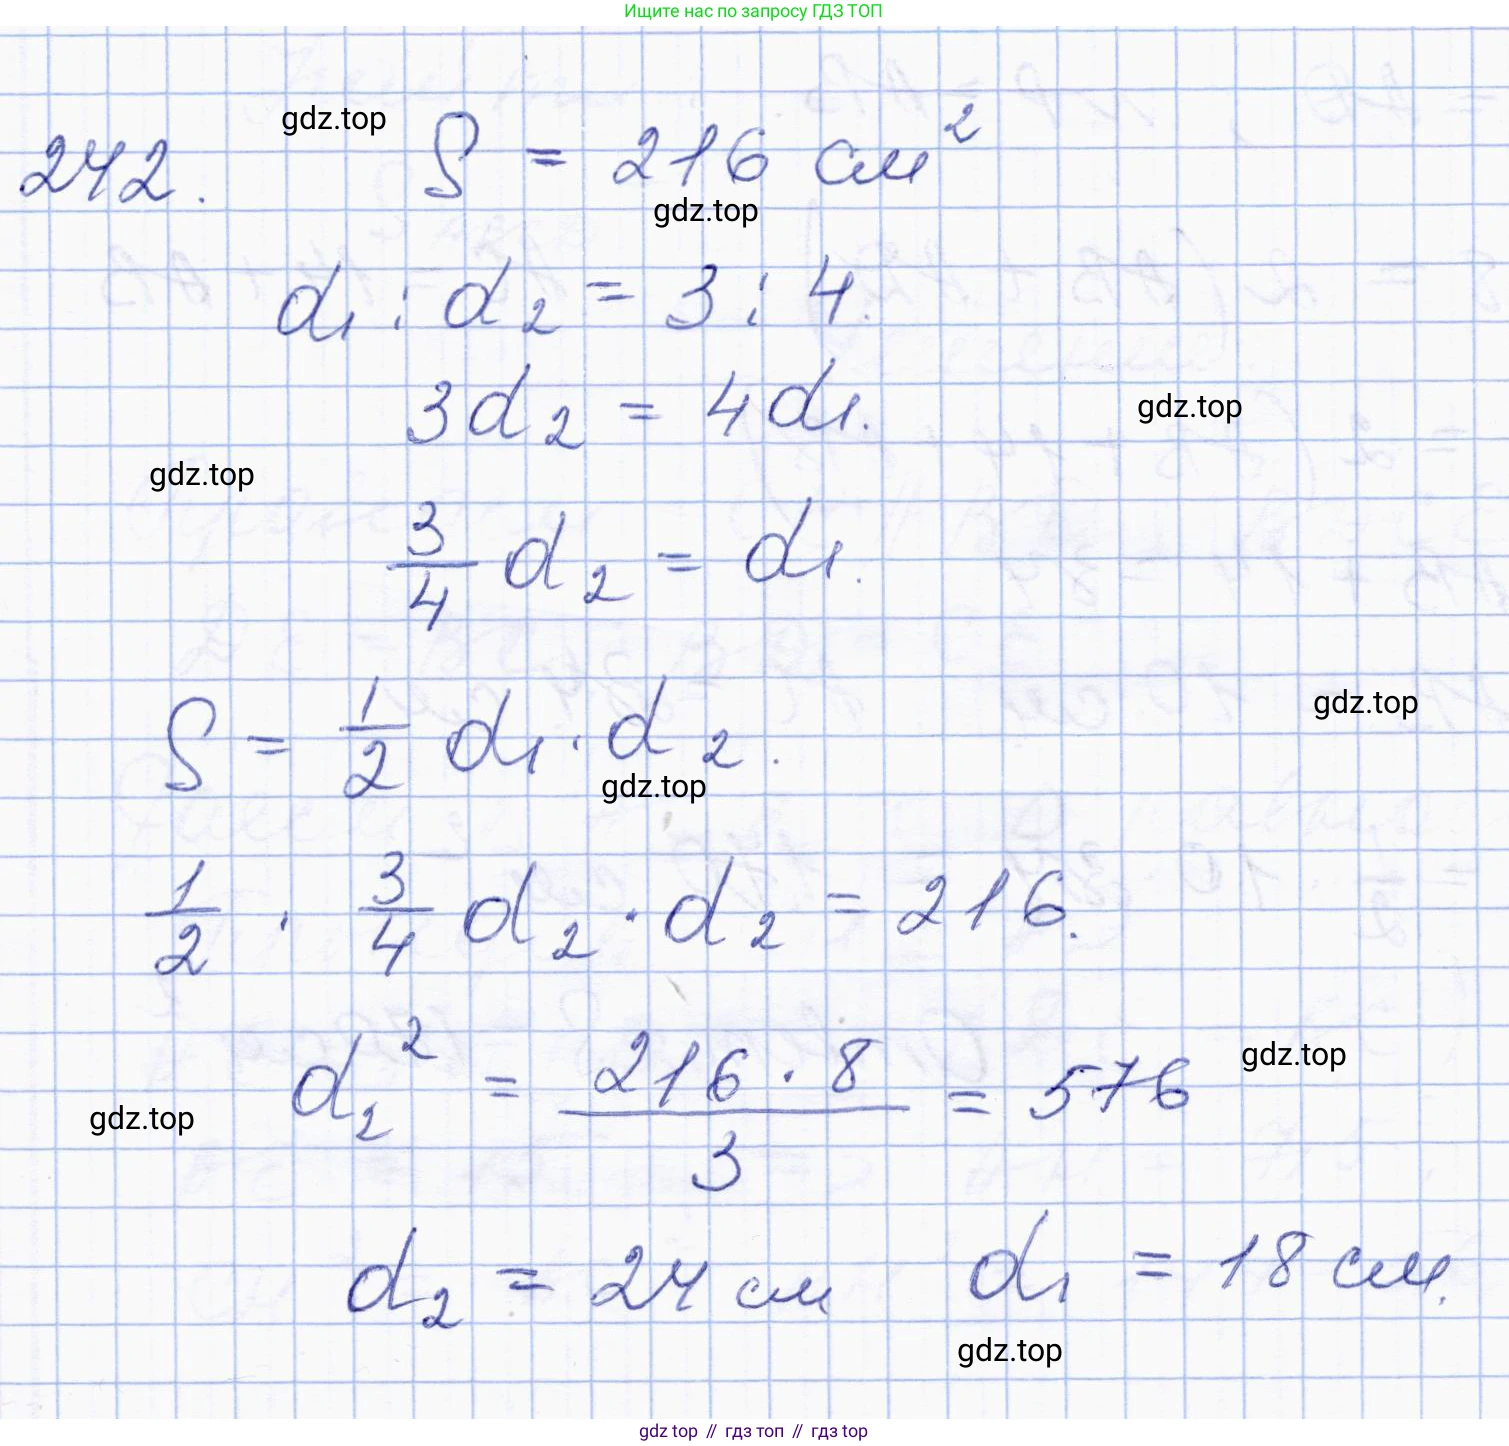 Ищите нас по запросу ГДЗ ТОП
gdz.top
242. S = 216 см²
gdz.top
d₁ : d₂ = 3 : 4.
3d₂ = 4d₁.
gdz.top
gdz.top
3/4 d₂ = d₁.
gdz.top
S = 1/2 d₁ · d₂.
gdz.top
1/2 · 3/4 d₂ · d₂ = 216.
gdz.top
d₂² = 216 · 8 / 3 = 576
gdz.top
d₂ = 24 см d₁ = 18 см.
gdz.top
gdz top // гдз топ // гдз top